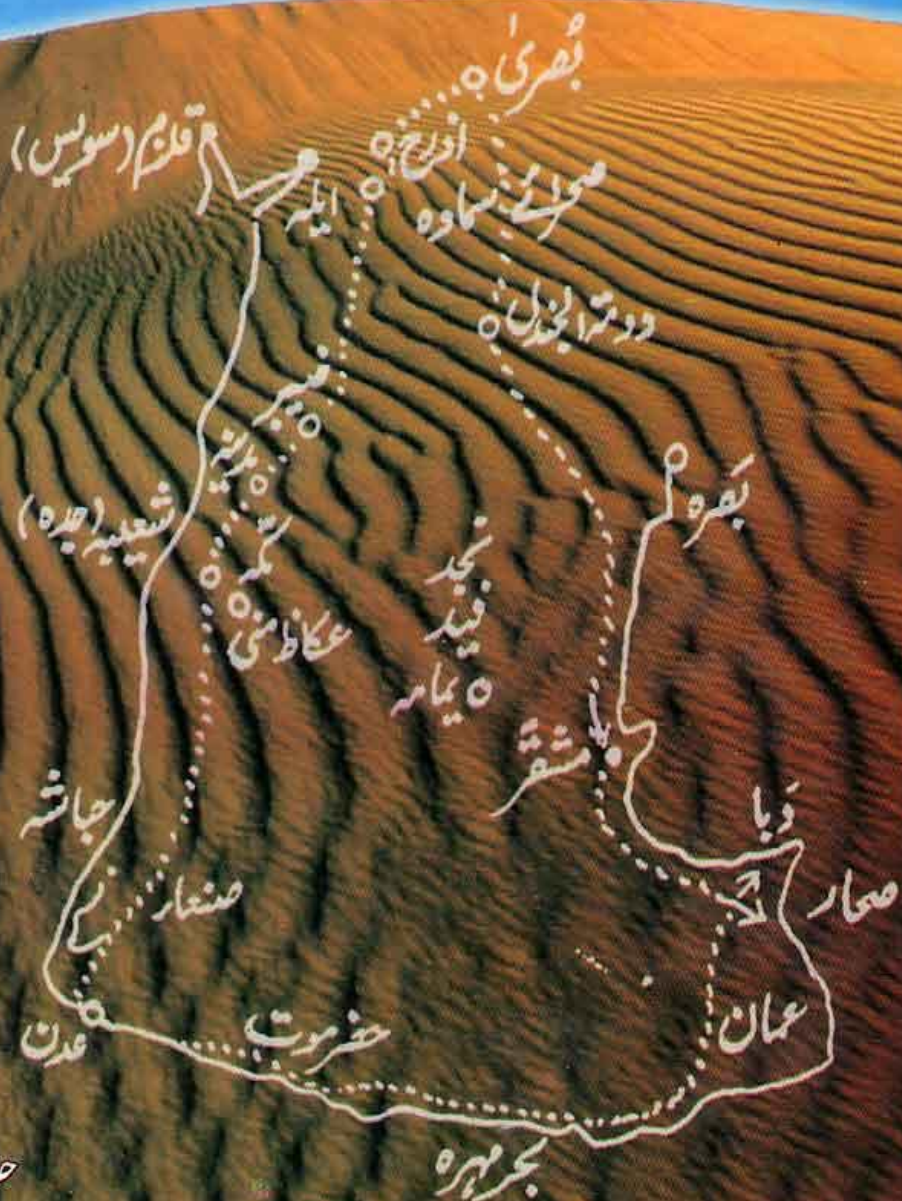 بُصریٰ
قلزم (سویس)
اذرح
ایلہ
صحرائے سماوہ
دومتہ الجندل
خیبر
مدینہ
بَصرہ
شعیبیہ (جدہ)
مکہ
عکاظ منیٰ
نجد
فید
یمامہ
مشقر
دَبا
حباشہ
صنعاء
صحار
عدن
حضر موت
عمان
بحر مہرہ